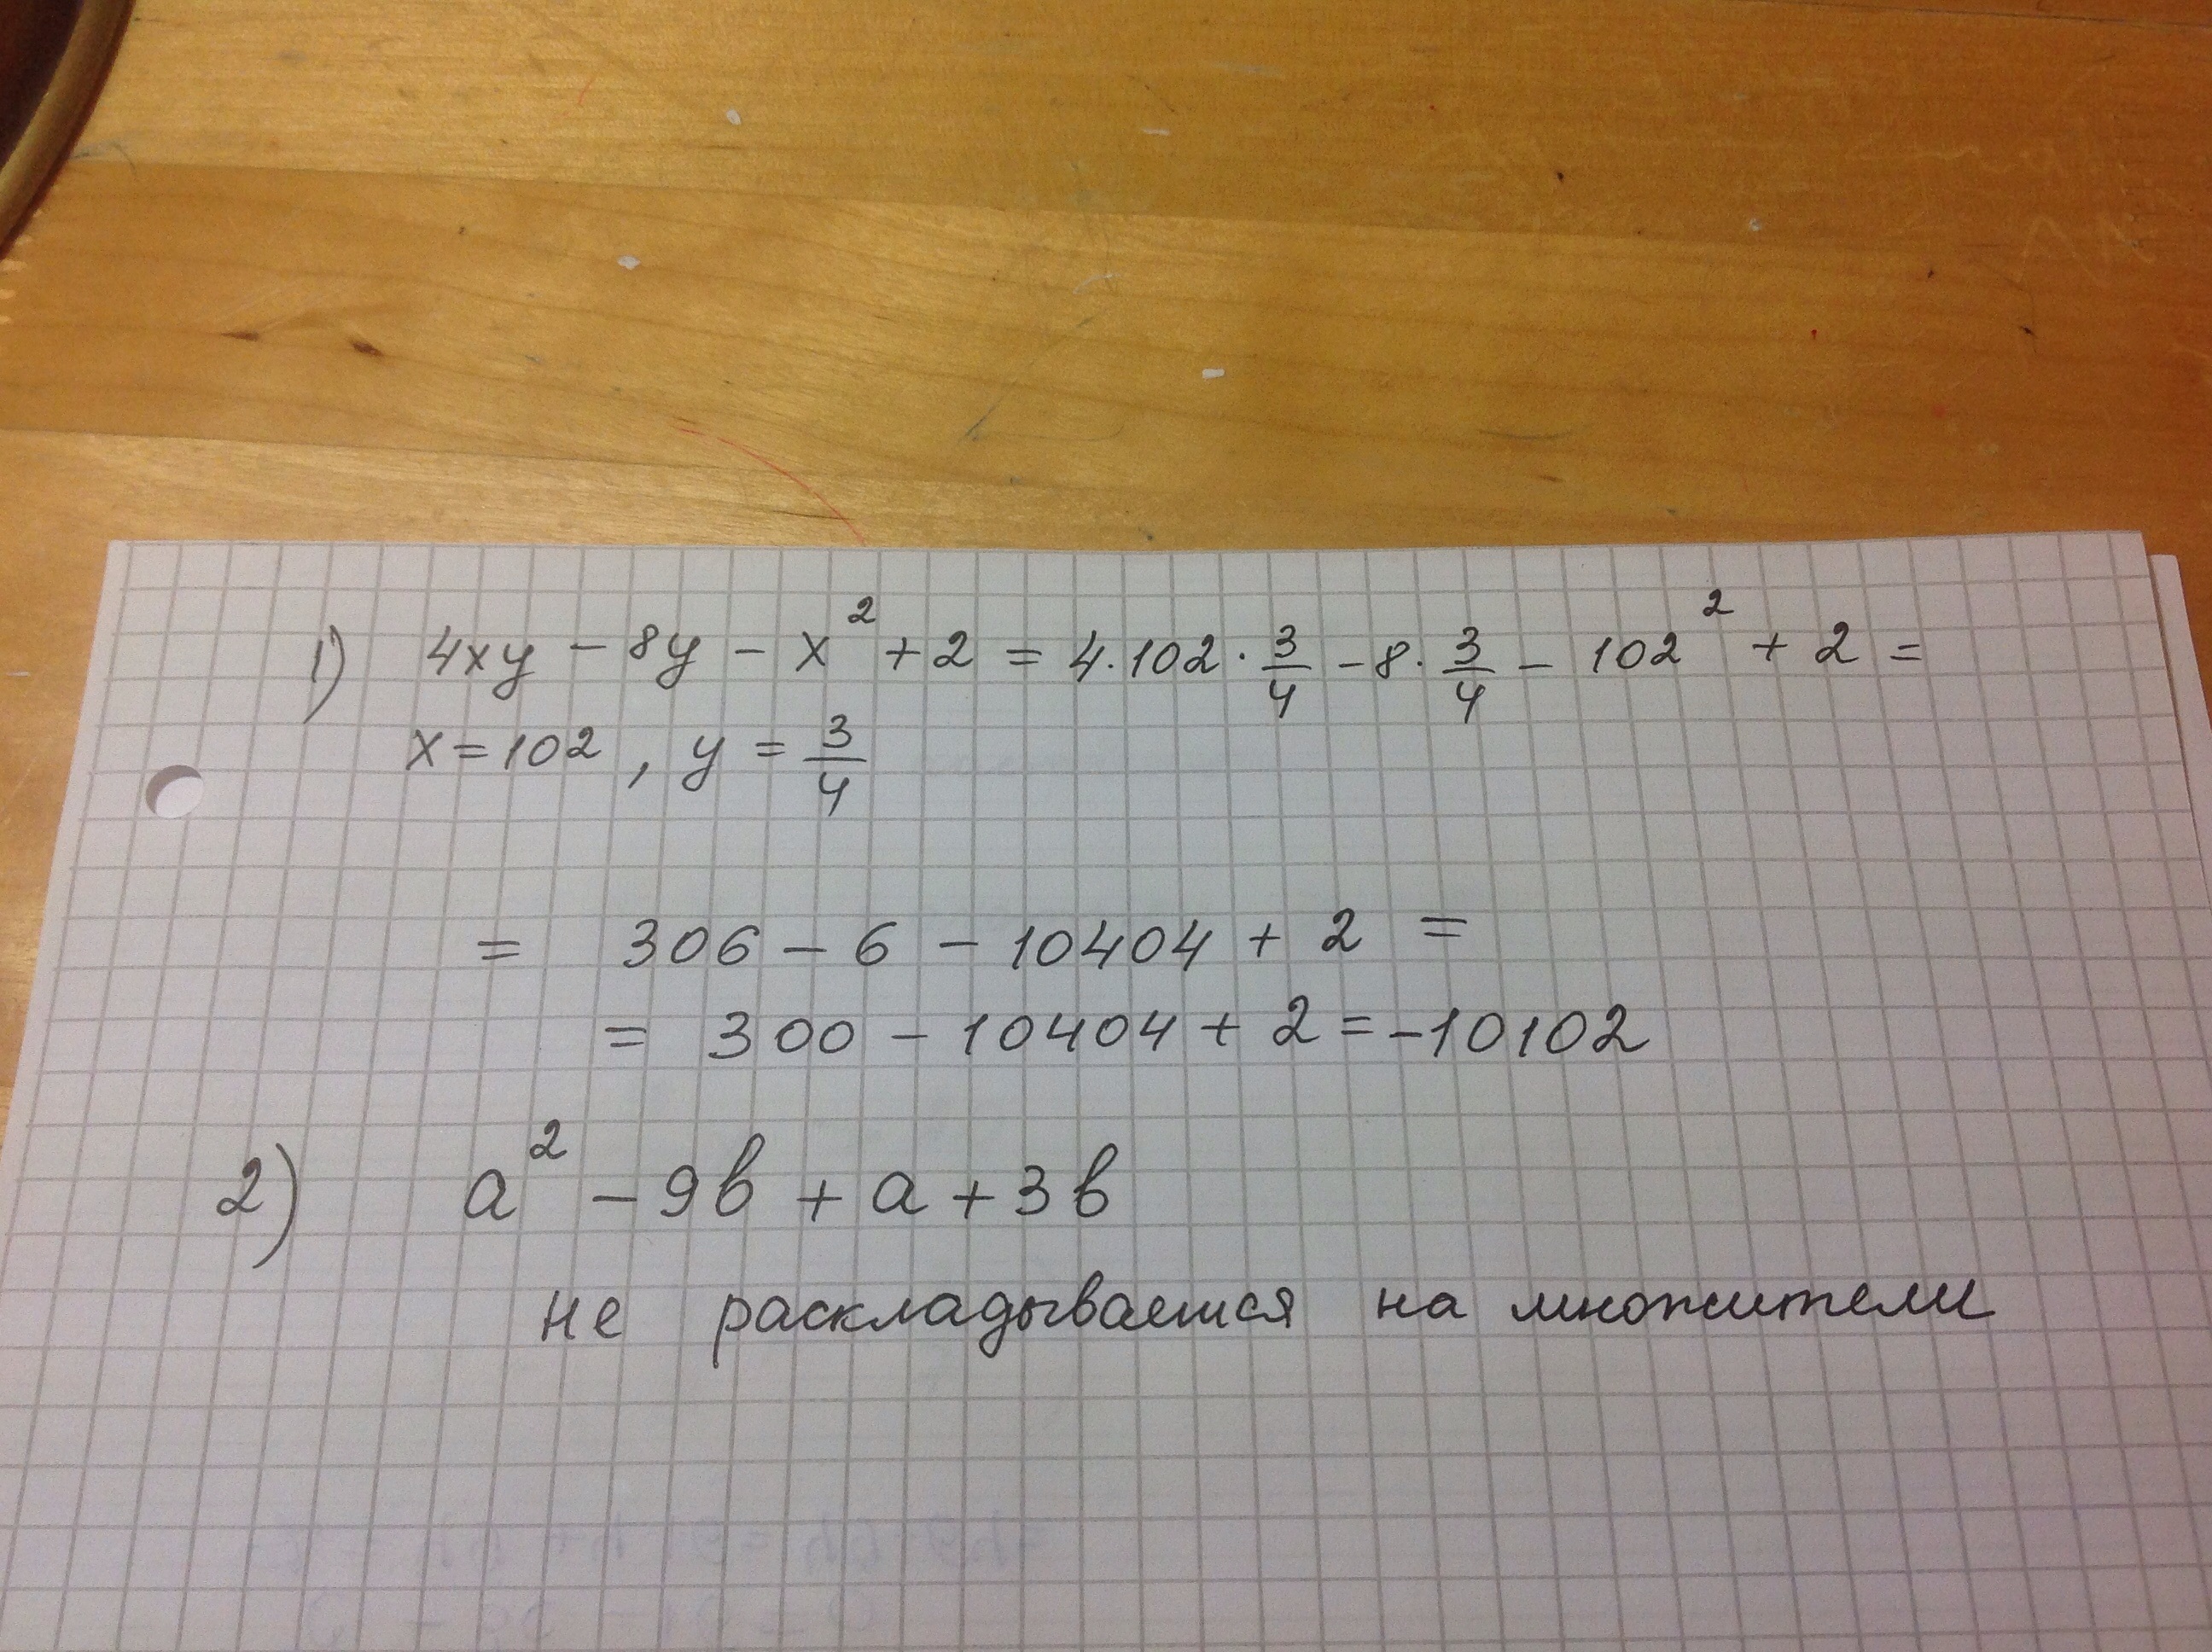 1) 4xy - 8y - x² + 2 = 4·102·3/4 - 8·3/4 - 102² + 2 =
x = 102, y = 3/4
= 306 - 6 - 10404 + 2 =
= 300 - 10404 + 2 = -10102
2) a² - 9b + a + 3b
не раскладывается на множители